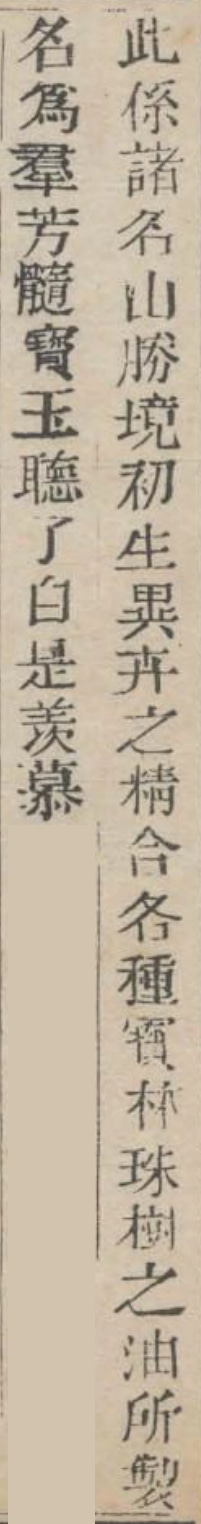 此係諸名山勝境初生異卉之精合各種寳林珠樹之油所製
名爲羣芳髓寳玉聽了自是羡慕